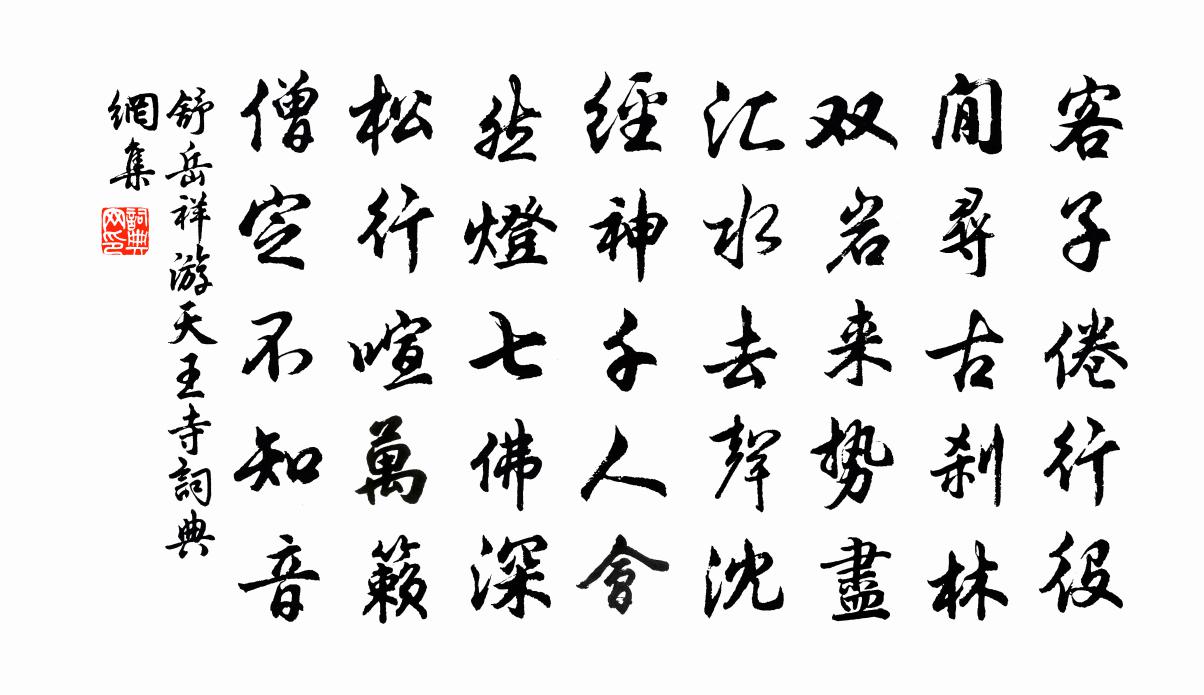 客子倦行役
閒尋古刹林
双岩来势盡
汇水去聲沈
經神千人會
然燈七佛深
松行喧萬籟
僧定不知音
舒岳祥游天王寺詞典
網集
詞典网印